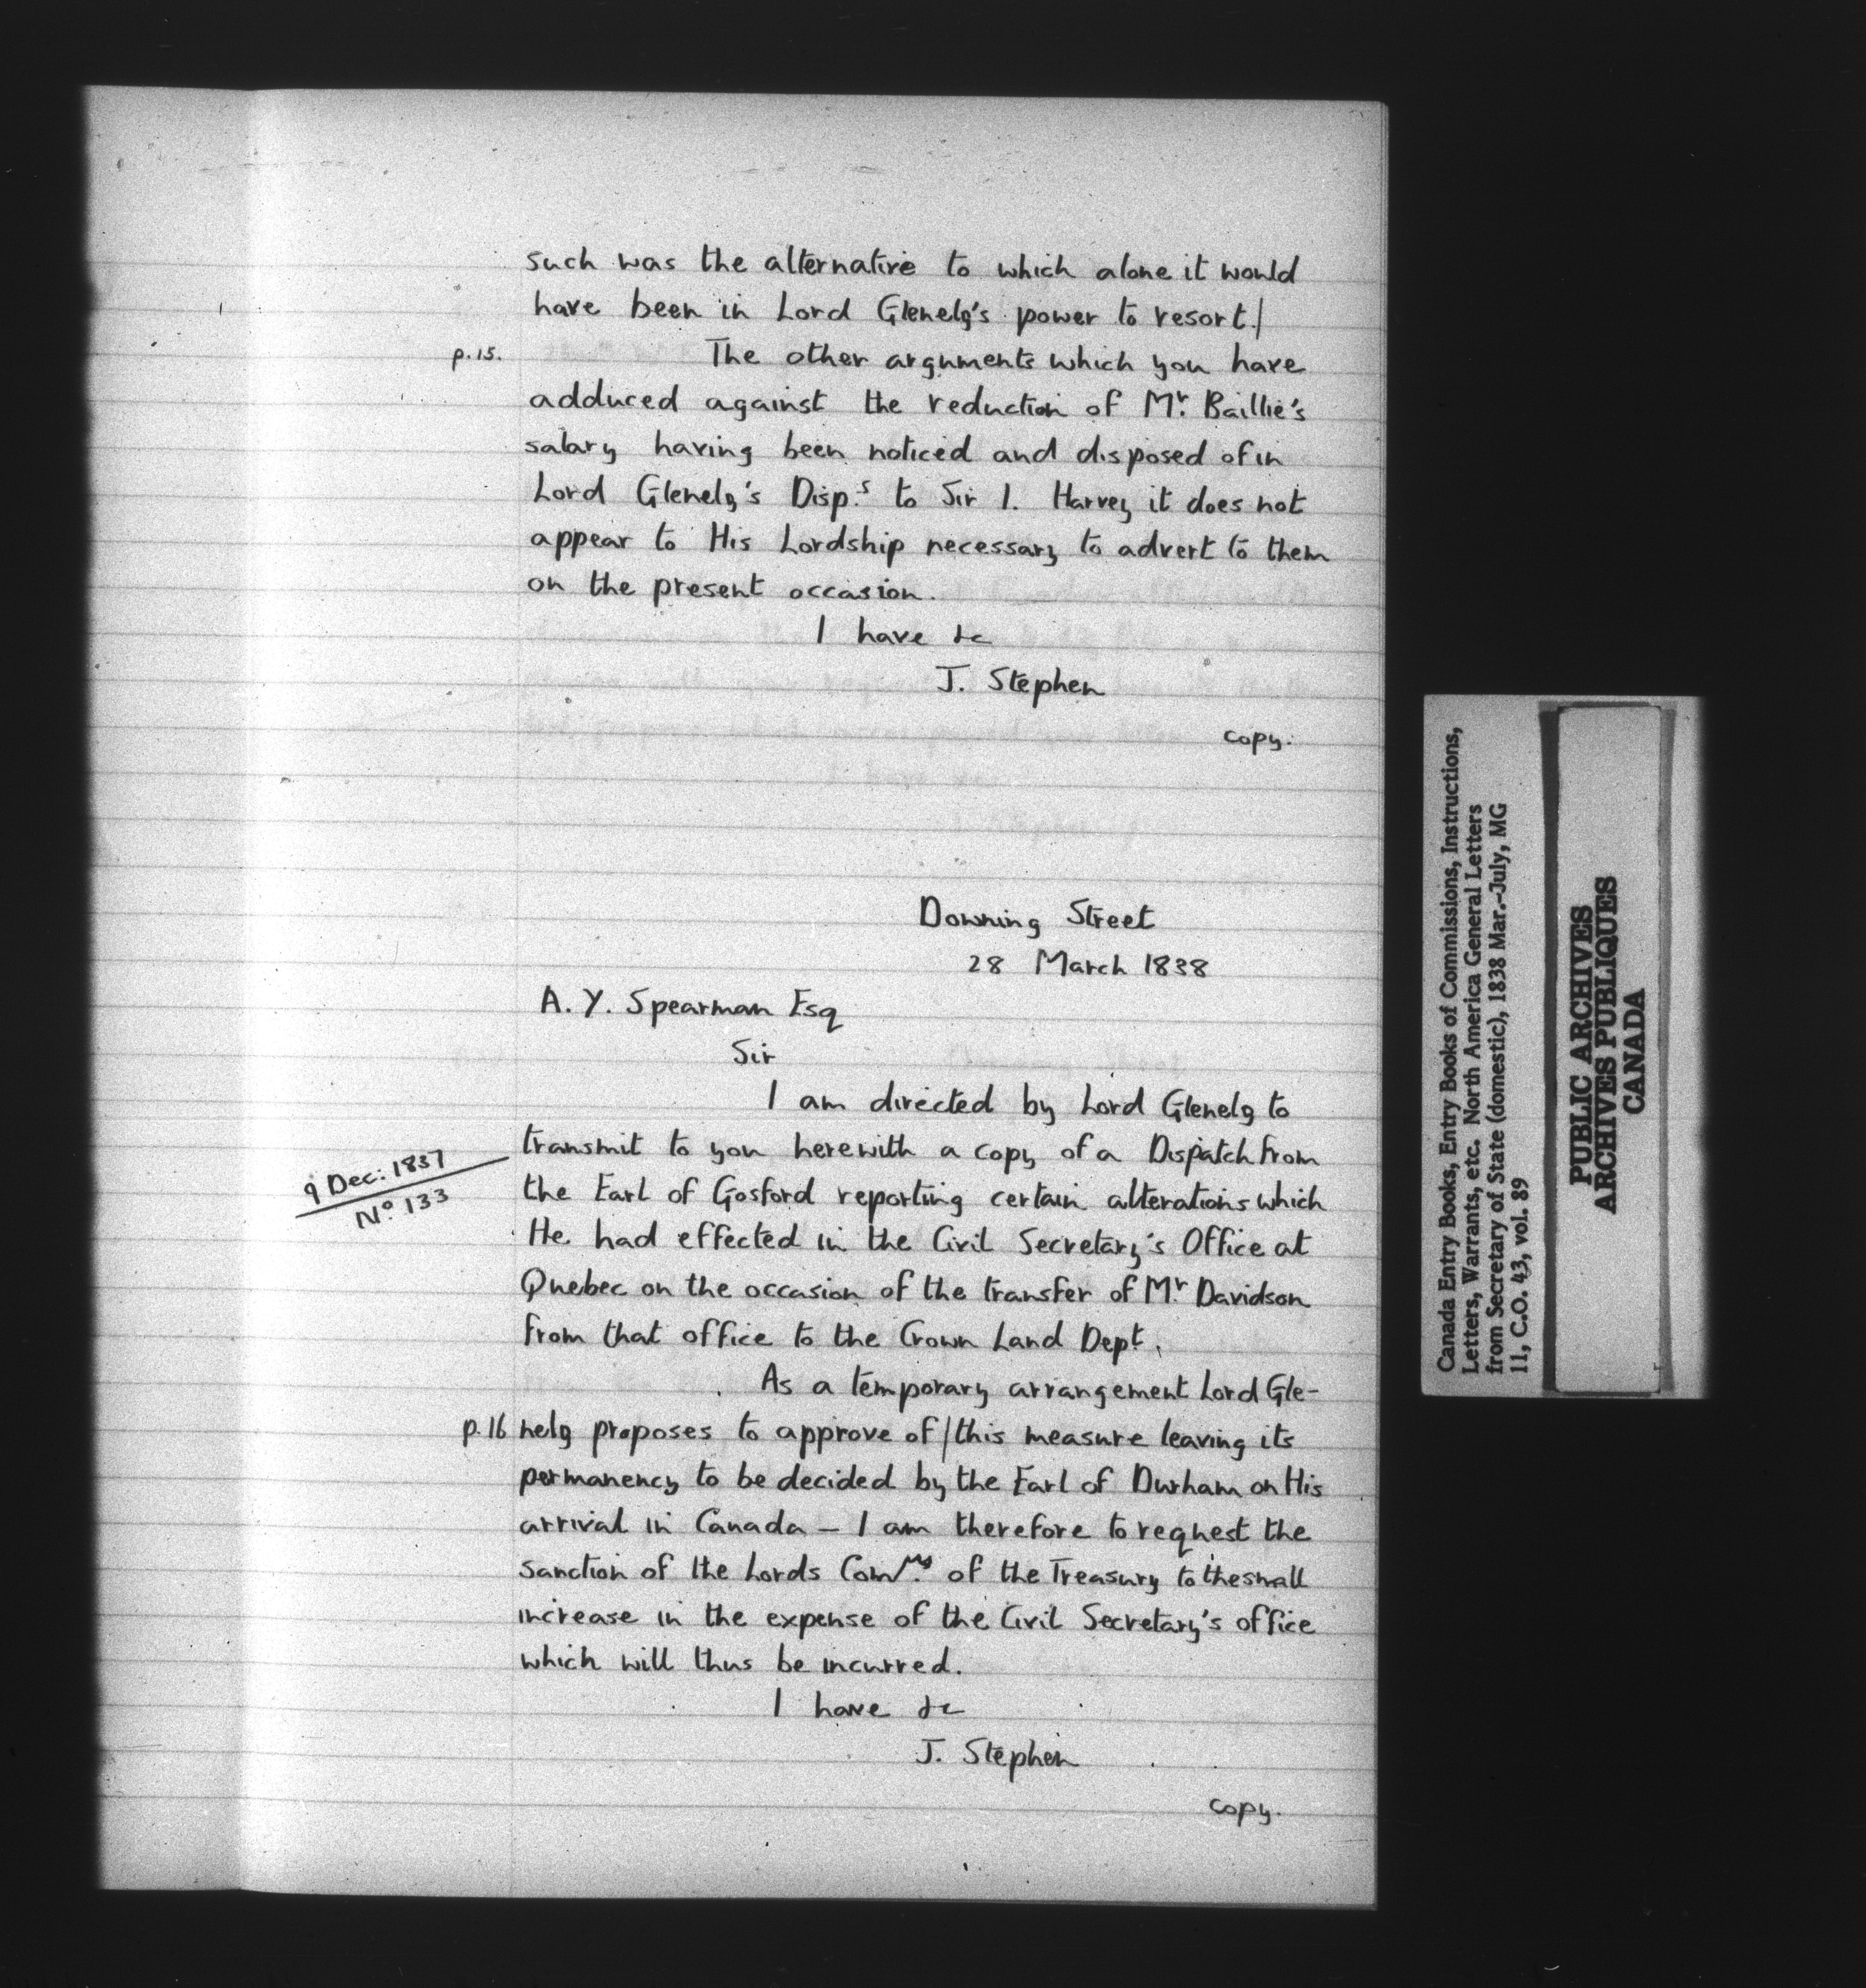 such was the alternative to which alone it would
have been in Lord Glenelg's power to resort./
p.15. The other arguments which you have
adduced against the reduction of Mr. Baillie's
salary having been noticed and disposed of in
Lord Glenelg's Disp.s to Sir I. Harvey it does not
appear to His Lordship necessary to advert to them
on the present occasion.
I have &c
J. Stephen
copy.
Downing Street
28 March 1838
A. Y. Spearman Esq
Sir
I am directed by Lord Glenelg to
transmit to you herewith a copy of a Dispatch from
9 Dec: 1837
No 133
the Earl of Gosford reporting certain alterations which
He had effected in the Civil Secretary's Office at
Quebec on the occasion of the transfer of Mr. Davidson
from that office to the Crown Land Dept.
As a temporary arrangement Lord Gle-
p.16 nelg proposes to approve of/this measure leaving its
permanency to be decided by the Earl of Durham on His
arrival in Canada – I am therefore to request the
sanction of the Lords Comrs. of the Treasury to the small
increase in the expense of the Civil Secretary's office
which will thus be incurred.
I have &c
J. Stephen
copy.
Canada Entry Books, Entry Books of Commissions, Instructions,
Letters, Warrants, etc. North America General Letters
from Secretary of State (domestic), 1838 Mar.-July, MG
11, C.O. 43, vol. 89
PUBLIC ARCHIVES
ARCHIVES PUBLIQUES
CANADA